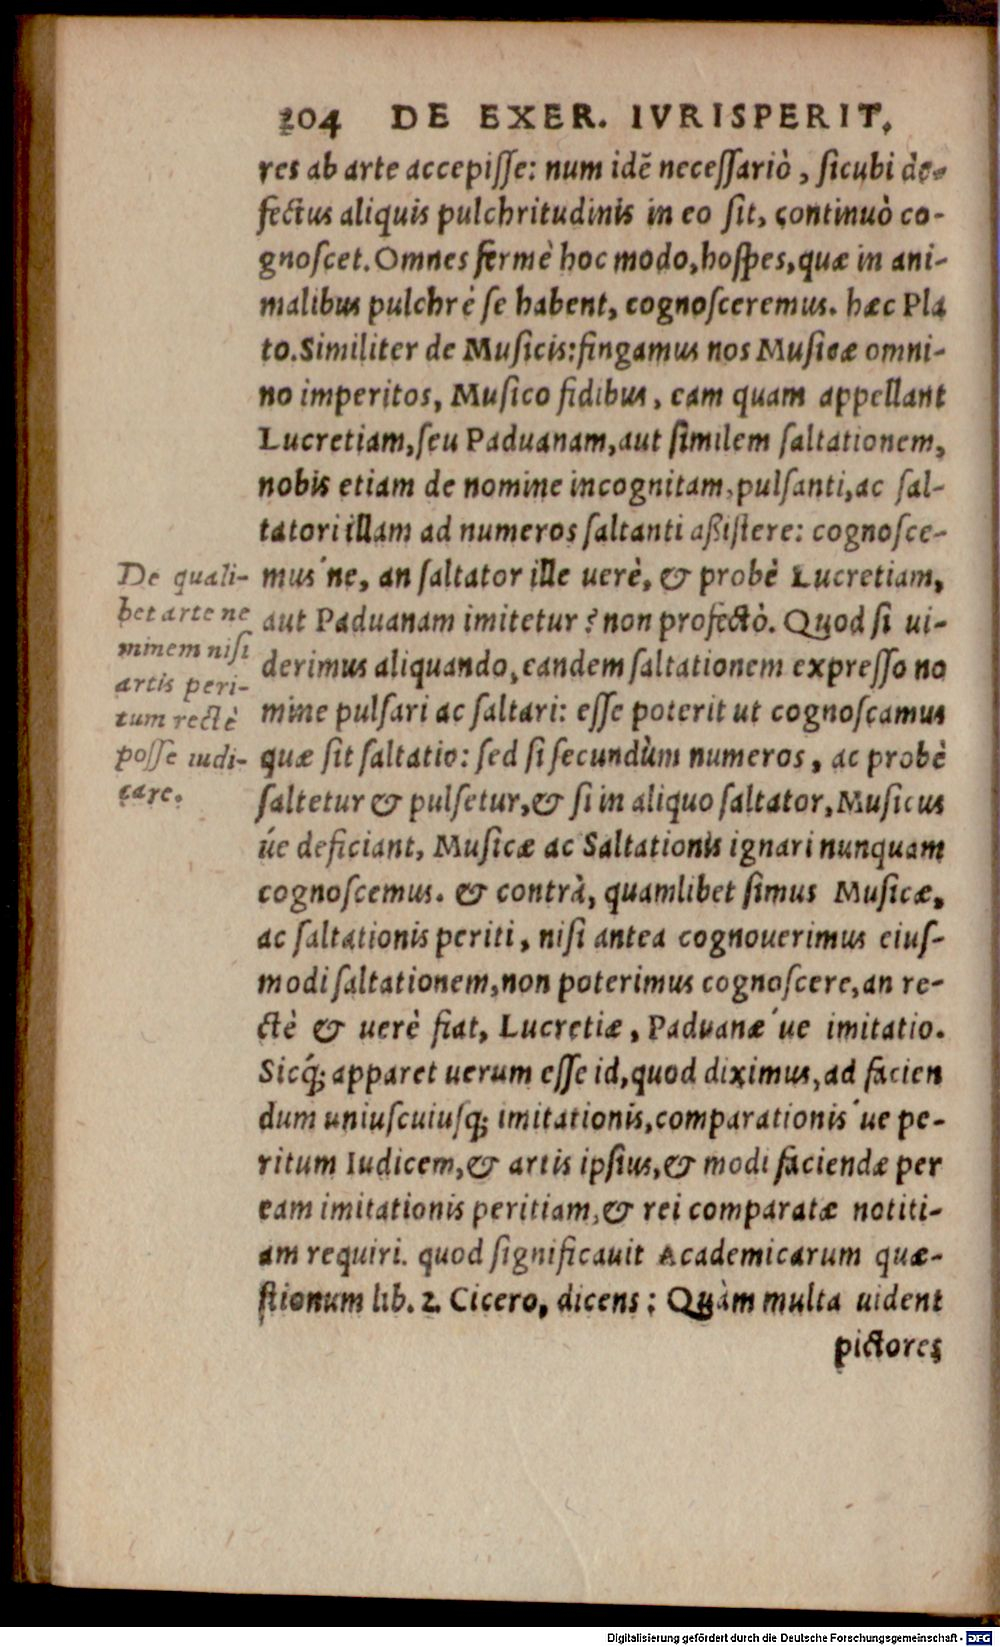 204 DE EXER. IVRISPERIT.
res ab arte accepiſſe: num idē neceſſariò, ſicubi de-
fectus aliquis pulchritudinis in eo ſit, continuò co-
gnoſcet. Omnes fermè hoc modo, hoſpes, quæ in ani-
malibus pulchrè ſe habent, cognoſceremus. hæc Pla
to. Similiter de Muſicis: fingamus nos Muſicæ omni-
no imperitos, Muſico fidibus, eam quam appellant
Lucretiam, ſeu Paduanam, aut ſimilem ſaltationem,
nobis etiam de nomine incognitam, pulſanti, ac ſal-
tatori illam ad numeros ſaltanti aßiſtere: cognoſce-
mus'ne, an ſaltator ille uerè, & probè Lucretiam,
aut Paduanam imitetur? non profectò. Quod ſi ui-
derimus aliquando, eandem ſaltationem expreſſo no
mine pulſari ac ſaltari: eſſe poterit ut cognoſcamus
quæ ſit ſaltatio: ſed ſi ſecundùm numeros, ac probè
ſaltetur & pulſetur, & ſi in aliquo ſaltator, Muſicus
úe deficiant, Muſicæ ac Saltationis ignari nunquam
cognoſcemus. & contrà, quamlibet ſimus Muſicæ,
ac ſaltationis periti, niſi antea cognouerimus eiuſ-
modi ſaltationem, non poterimus cognoſcere, an re-
ctè & uerè fiat, Lucretiæ, Paduanæ'ue imitatio.
Sicq́; apparet uerum eſſe id, quod diximus, ad facien
dum uniuſcuiuſq; imitationis, comparationis'ue pe-
ritum Iudicem, & artis ipſius, & modi faciendæ per
eam imitationis peritiam, & rei comparatæ notiti-
am requiri. quod ſignificauit Academicarum quæ-
ſtionum lib. 2. Cicero, dicens: Quàm multa uident
pictores
De quali-
bet arte ne
minem niſi
artis peri-
tum rectè
poſſe iudi-
care.
Digitalisierung gefördert durch die Deutsche Forschungsgemeinschaft - DFG